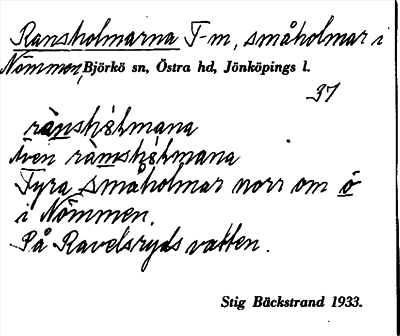 Ransholmarna T-m, småholmar i
Nömmen, Björkö sn, Östra hd, Jönköpings l.
37
Även
Fyra småholmar norr om ö
i Nömmen.
På Ravelsryds vatten.
Stig Bäckstrand 1933.